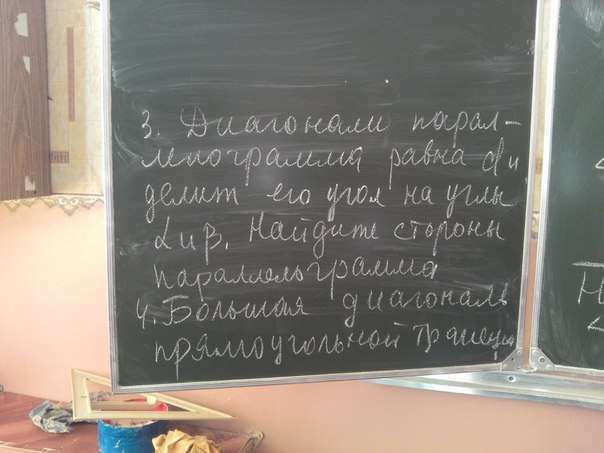 3. Диагонали парал-
лелограмма равна d и
делит его угол на углы
α и β. Найдите стороны
параллельграмма
4. Большая диагональ
прямоугольной трапеции
Н